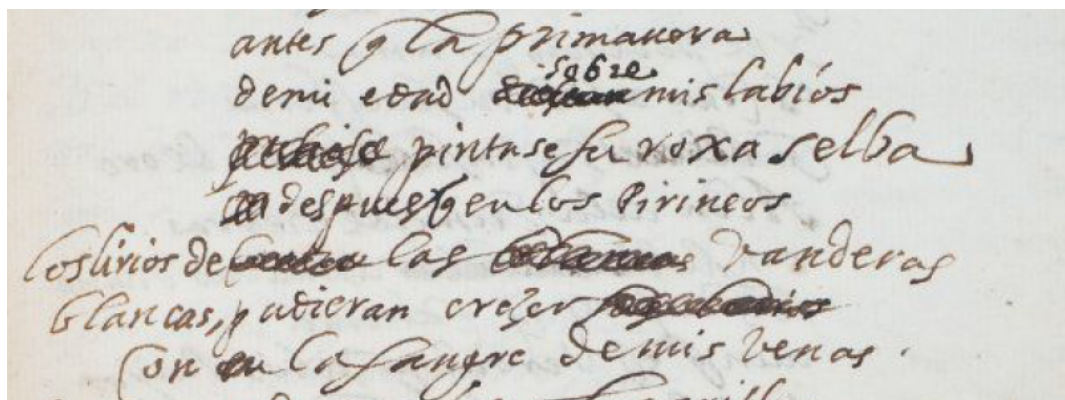 antes q la primauera
de mi edad sobre mis labios
pintase su roxa selba
despues q en los Pirineos
los lirios de las vanderas
blancas, pudieran creçer
con la sangre de mis venas.